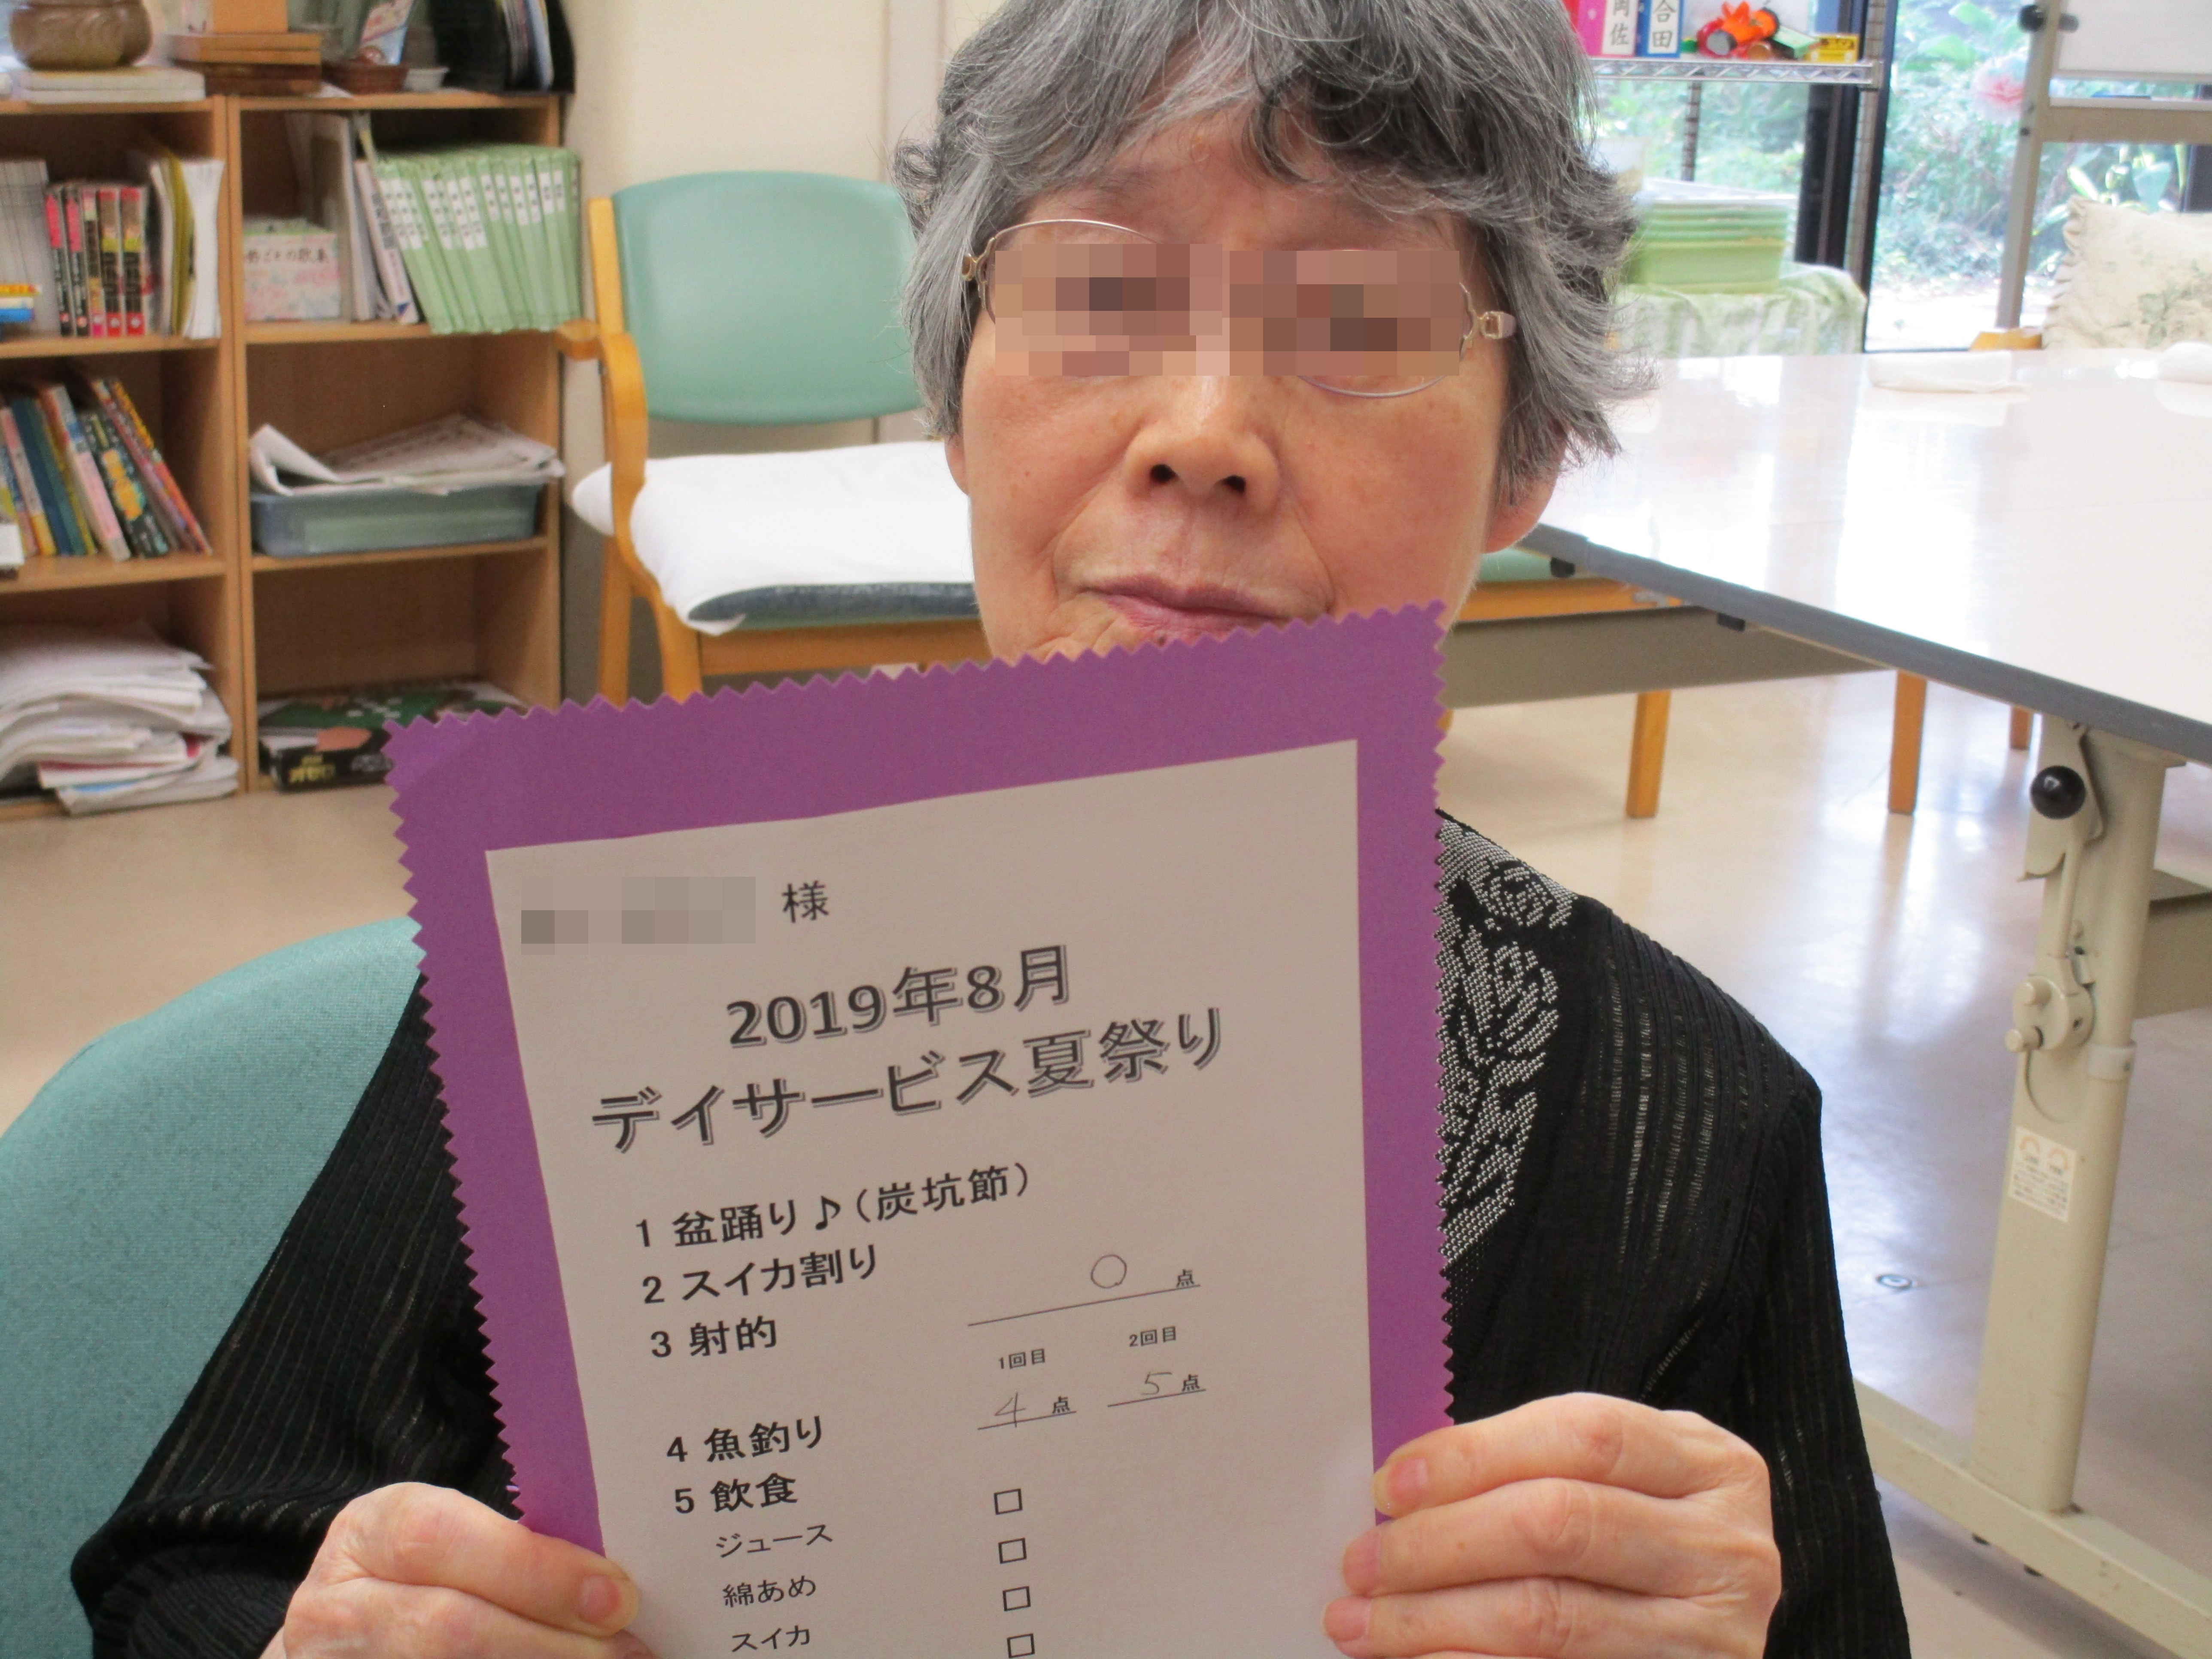 岡佐
合田
様
2019年8月
デイサービス夏祭り
1 盆踊り♪(炭坑節)
2 スイカ割り
○ 点
3 射的
1回目 2回目
4 点 5 点
4 魚釣り
5 飲食
ジュース □
綿あめ □
スイカ □
□